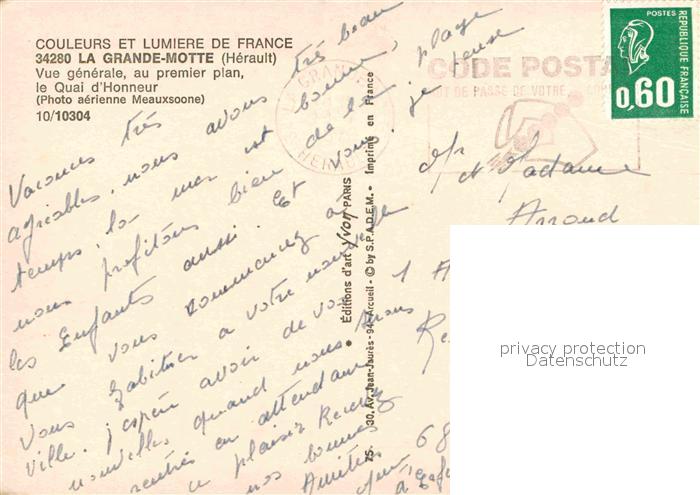 COULEURS ET LUMIERE DE FRANCE
34280 LA GRANDE-MOTTE (Hérault)
Vue générale, au premier plan,
le Quai d'Honneur
(Photo aérienne Meauxsoone)
10/10304
Vacances très
agréables, nous avons très beau
temps, la mer est bonne,
nous profitons bien de la plage
les Enfants aussi. Et vous, je pense
que vous commencez à
vous habituer à votre nouvelle
ville. j'espère avoir de vos
nouvelles quand nous serons
rentrés en attendant
ce plaisir Recevez
nos bonnes
Amitiés
Editions d'art yvon PARIS
75 - 30, Av. Jean-Jaurès - 94-Arcueil - © by S.P.A.D.E.M. • Imprimé en France
CODE POSTA
LA GRANDE
HERAULT
POSTES
REPUBLIQUE FRANÇAISE
0,60
Mr et Madame
Arnoud
1 A
Re
68
privacy protection
Datenschutz